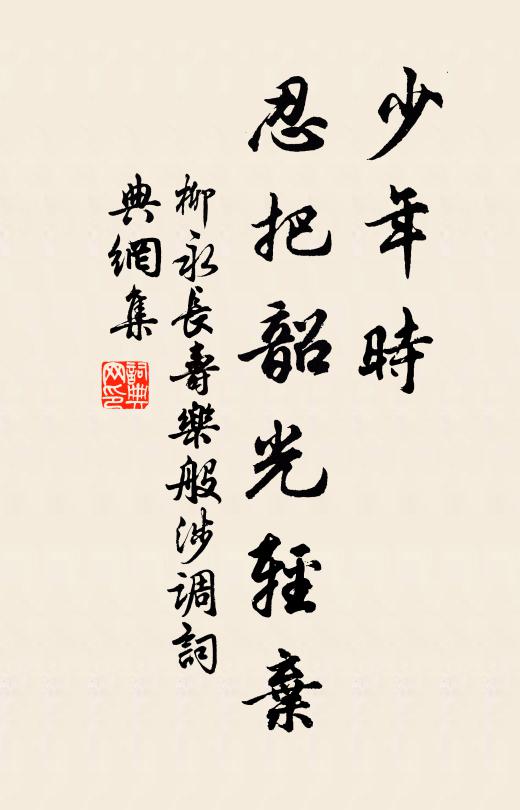 少年時
忍把韶光輕棄
柳永長壽樂般涉調詞
典網集
詞典
网印